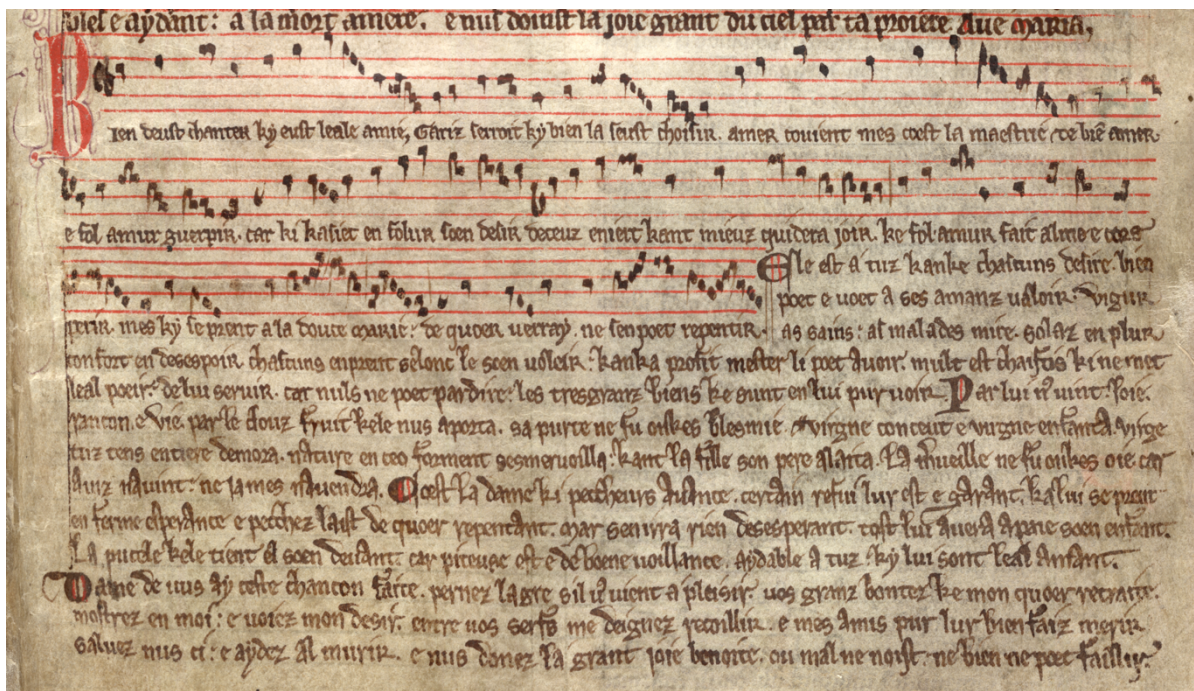 uiel e aydant: a la mort amere. e nus doinst la joie grant du ciel par ta proiere. Aue maria,
Bien deust chanter ky eust leale amie, Gariz serroit ky bien la seust choisir. amer couient mes coest la maestrie, de biē amer
e fol amur guerpir. car ki kasiet en folur soen desir deceuz eniert kant mieuz quidera joir. ke fol amur fait alme e cors
perir. mes ky se prent a la douce marie: de quoer uerray. ne sen poet repentir.
Ele est a tuz kanke chascuns desire. bien
poet e uoet a ses amanz ualoir. uigur
as sains: as malades mire. solaz en plur
confort en desespoir. chascuns enprent selonc le soen uoleir. kanka profit mester li poet auoir. mult est chaitifs ki ne met
leal poeir: de lui seruir. car nuls ne poet par dire: les tresgranz biens ke sunt en lui pur uoir. Par lui nꝰ uint: joie.
rancon. e vie. par le douz fruit kele nus aporta. sa purte ne fu onkes blesmie. virgne conceut e virgne enfanta. virge
tuz tens entiere demora. nature en ceo forment sesmervoilla: kant la fille son pere alaita. La m̃ueille ne fu onkes oie car
auiz nauint: ne ja mes nauendra. Ceo est la dame ki peccheurs auance. certain refui lur est e garant. ka lui se prent
en ferme esperance e pecchez laist de quoer repentant. mar sen ira rien desesperant. tost lui auera apaie soen enfant.
La pucele kele tient a soen deuant. car piteuse est e de boene uoillance. aydable a tuz ky lui sont leal amant.
Dame de uus ay ceste chancon faite. pernez la gre sil uꝰ uient a pleisir. uos granz bontez ke mon quoer retraite.
mostrez en moi: e uoiez mon desir. entre uos serfs me deignez recoillir. e mes amis pur lur bien faiz merir
saluez nus ci: e aydez al murir. e nus donez la grant joie benoite. ou mal ne noist. ne bien ne poet faillir.